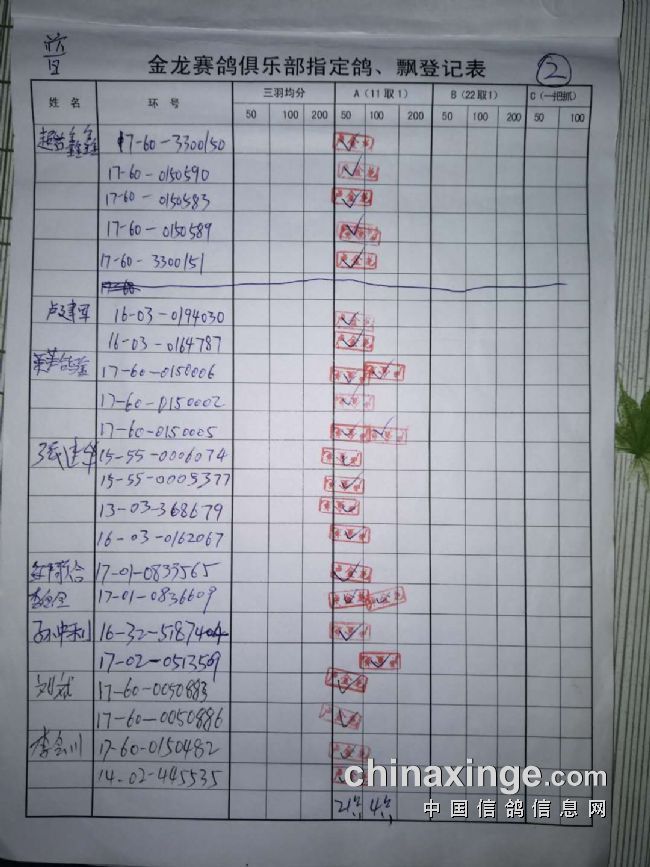 ②
金龙赛鸽俱乐部指定鸽、飘登记表
姓 名 环 号 三羽均分 A（11取1） B（22取1） C（一把抓）
50 100 200 50 100 200 50 100 200 50 100
17-60-3300150
17-60-0150590
17-60-0150583
17-60-0150589
17-60-3300151
卢建军 16-03-0194030
16-03-0164787
17-60-0150006
17-60-0150002
17-60-0150005
张建华 15-55-0006074
15-55-0005377
13-03-368679
16-03-0162067
17-01-0835565
17-01-0836609
孙中利 16-32-5187404
17-02-0513509
刘斌 17-60-0050883
17-60-0050886
李会川 17-60-0150482
14-02-445535
21 4
chinaxinge.com
中国信鸽信息网